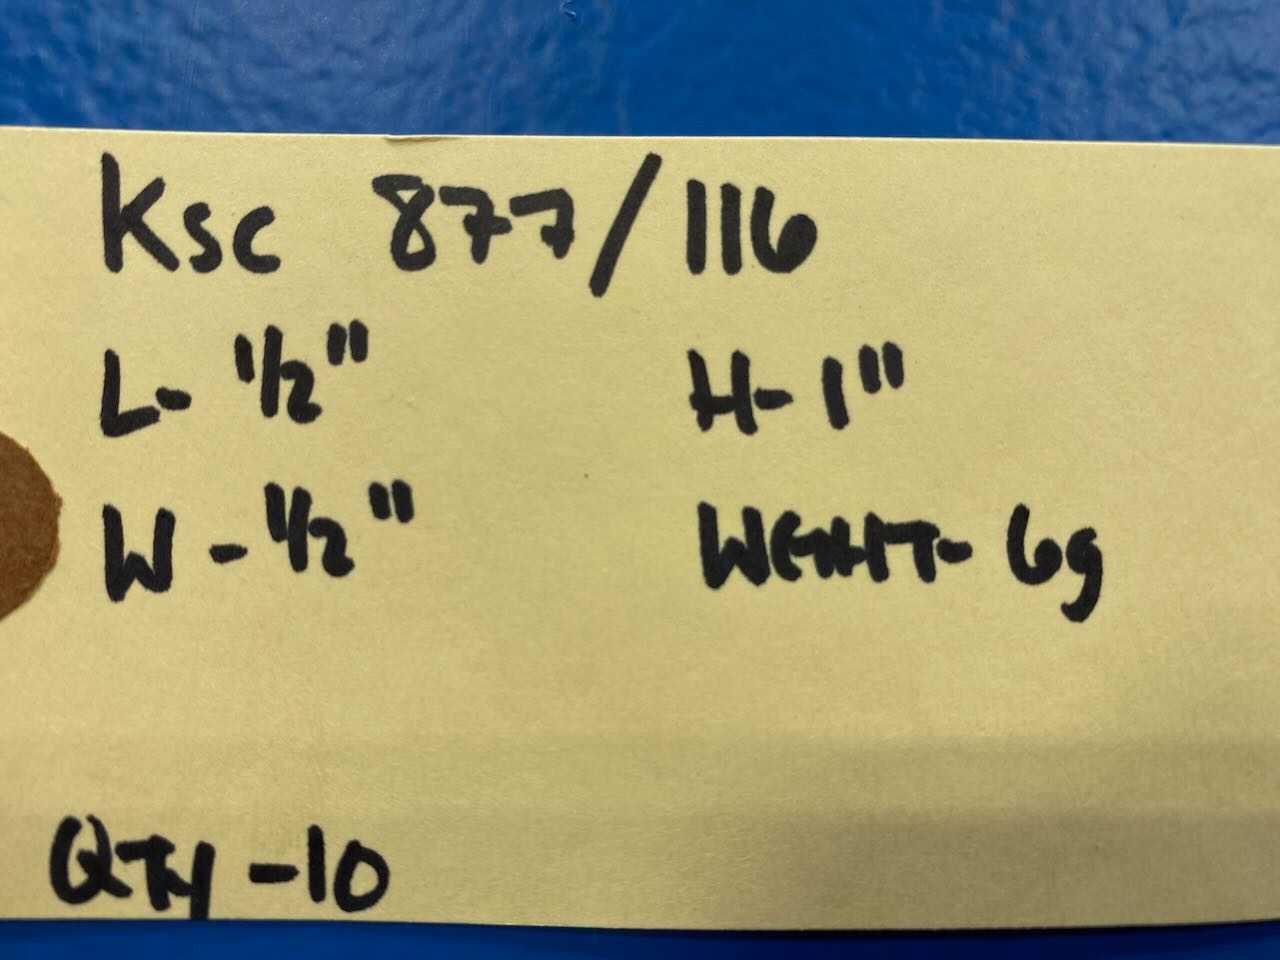 Ksc 877/116
L- 1/2" H- 1"
W - 1/2" WEIGHT- 6g
QTY -10